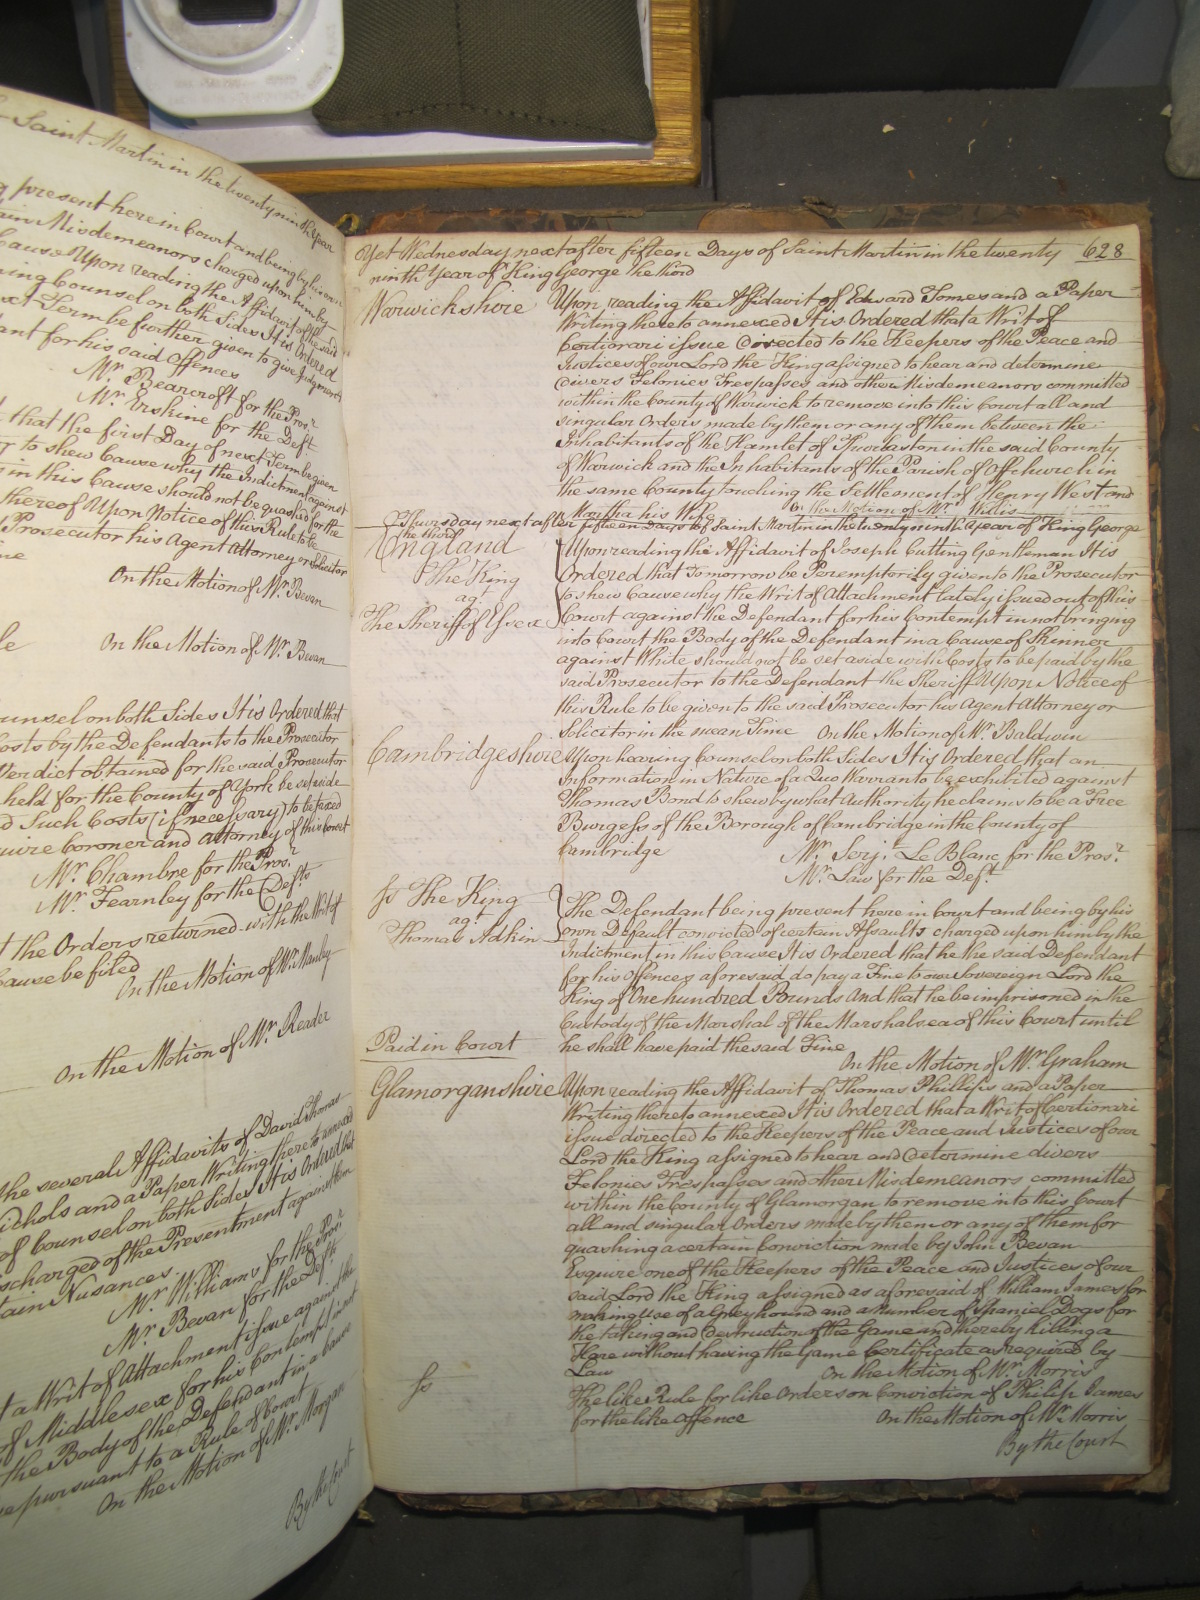 Saint Martin in the twenty ninth Year
present here in Court and being by his own
Misdemeanors charged upon him by
Cause Upon reading the Affidavit of the said
Counsel on both Sides It is Ordered
Term be further given to give Judgment
for his said Offences
Mr. Bearcroft for the Prosr.
Mr. Erskine for the Deft
that the first Day of next Term be given
to shew Cause why the Indictment against
in this Cause should not be quashed for the
thereof Upon Notice of this Rule to be
Prosecutor his Agent Attorney or Solicitor
On the Motion of Mr. Bevan
On the Motion of Mr. Bevan
Counsel on both Sides It is Ordered that
Costs by the Defendants to the Prosecutor
Verdict obtained for the said Prosecutor
held for the County of York be set aside
Such Costs (if necessary) to be taxed
Coroner and Attorney of this Court
Mr. Chambre for the Prosr.
Mr. Fearnley for the Defts
the Orders returned with the Writ of
Cause be filed
On the Motion of Mr. Manley
On the Motion of Mr. Reader
the several Affidavits of David Thomas
Nichols and a Paper Writing thereto annexed
of Counsel on both Sides It is Ordered that
discharged of the Presentment against them
Nusances.
Mr. Williams for the Prosr.
Mr. Bevan for the Deft.
a Writ of Attachment issue against the
of Middlesex for his Contempt in not
the Body of the Defendant in a Cause
pursuant to a Rule of Court
On the Motion of Mr. Morgan
By the Court
Yet Wednesday next after fifteen Days of Saint Martin in the twenty 628
ninth Year of King George the third
Warwickshire Upon reading the Affidavit of Edward Tomes and a Paper
Writing thereto annexed It is Ordered that a Writ of
Certiorari issue Directed to the Keepers of the Peace and
Justices of our Lord the King assigned to hear and determine
divers Felonies Trespasses and other Misdemeanors committed
within the County of Warwick to remove into this Court all and
singular Orders made by them or any of them between the
Inhabitants of the Hamlet of Thurlaston in the said County
of Warwick and the Inhabitants of the Parish of Offchurch in
the same County touching the Settlement of Henry West and
Martha his Wife On the Motion of Mr. Willis
Thursday next after fifteen Days of Saint Martin in the twenty ninth year of King George
the third
England Upon reading the Affidavit of Joseph Cutting Gentleman It is
The King Ordered that Tomorrow be Peremptorily given to the Prosecutor
agt. to shew Cause why the Writ of Attachment lately issued out of this
The Sheriff of Essex Court against the Defendant for his Contempt in not bringing
into Court the Body of the Defendant in a Cause of Skinner
against White should not be set aside with Costs to be paid by the
said Prosecutor to the Defendant the Sheriff Upon Notice of
this Rule to be given to the said Prosecutor his Agent Attorney or
Solicitor in the mean Time On the Motion of Mr. Baldwin
Cambridgeshire Upon hearing Counsel on both Sides It is Ordered that an
Information in Nature of a Quo Warranto be exhibited against
Thomas Bond to shew by what Authority he claims to be a Free
Burgess of the Borough of Cambridge in the County of
Cambridge Mr. Serjt. Le Blanc for the Prosr.
Mr. Law for the Deft.
The King The Defendant being present here in Court and being by his
agt. own Default convicted of certain Assaults charged upon him by the
Thomas Adkin Indictment in this Cause It is Ordered that he the said Defendant
for his Offences aforesaid do pay a Fine to our Sovereign Lord the
King of One hundred Pounds And that he be imprisoned in the
Custody of the Marshal of the Marshalsea of this Court until
Paid in Court he shall have paid the said Fine
On the Motion of Mr Graham
Glamorganshire Upon reading the Affidavit of Thomas Phillips and a Paper
Writing thereto annexed It is Ordered that a Writ of Certiorari
issue directed to the Keepers of the Peace and Justices of our
Lord the King assigned to hear and Determine divers
Felonies Trespasses and other Misdemeanors committed
within the County of Glamorgan to remove into this Court
all and singular Orders made by them or any of them for
quashing a certain Conviction made by John Bevan
Esquire one of the Keepers of the Peace and Justices of our
said Lord the King assigned as aforesaid of William James for
making use of a Greyhound and a Number of Spaniel Dogs for
the taking and destruction of the Game and thereby killing a
Hare without having the Game Certificate as required by
Law On the Motion of Mr. Morris
The like Rule for like Orders on Conviction of Philip James
for the like Offence On the Motion of Mr Morris
By the Court